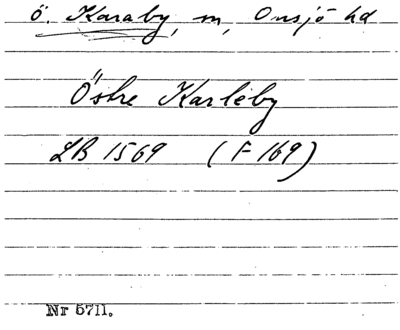 Ö. Karaby, m, Onsjö hd
Östre Karleby
LB 1569 (F 169)
Nr 5711.